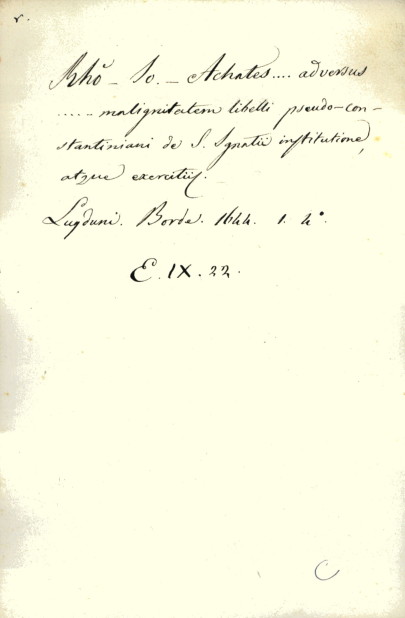 r.
Rhō - Io. - Achates .... adversus
..... malignitatem libelli pseudo-con-
stantiniani de S. Ignatii institutione,
atque exercitiis.
Lugduni. Borde. 1644. 1. 4°.
E. IX. 22.